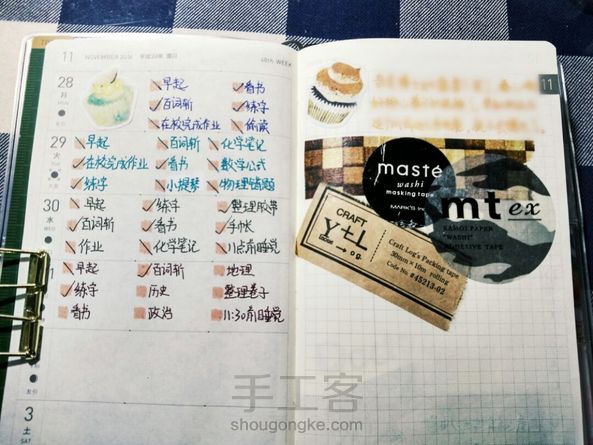 11 NOVEMBER 2016 平成28年 霜月 48th WEEK
28 月 MON
早起 看书
百词斩 练字
在校完成作业 依读
29 火
早起 百词斩 化学笔记
在校完成作业 看书 数学公式
练字 小提琴 物理错题
30 水
早起 练字 整理胶带
百词斩 看书 手帐
作业 化学笔记 11点前睡觉
早起 百词斩 地理
练字 历史 整理卷子
看书 政治 11:30前睡觉
3 土 SAT
11
masté
washi
masking tape
MARK'S
mt ex
KAMOI PAPER
"WASHI"
ADHESIVE TAPE
CRAFT
Y+L
Craft Log's Packing tape
30mm×10m rolling
Code No #45213-02
手工客
shougongke.com